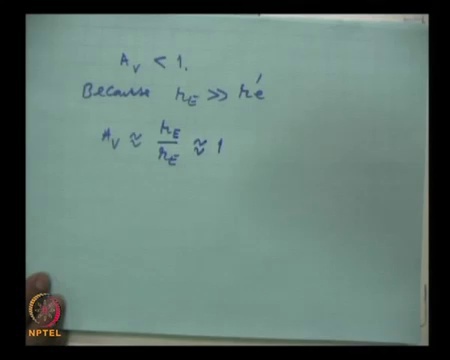 A_V < 1.
Because r_E >> r'_e
A_V ≈ r_E / r_E ≈ 1
NPTEL